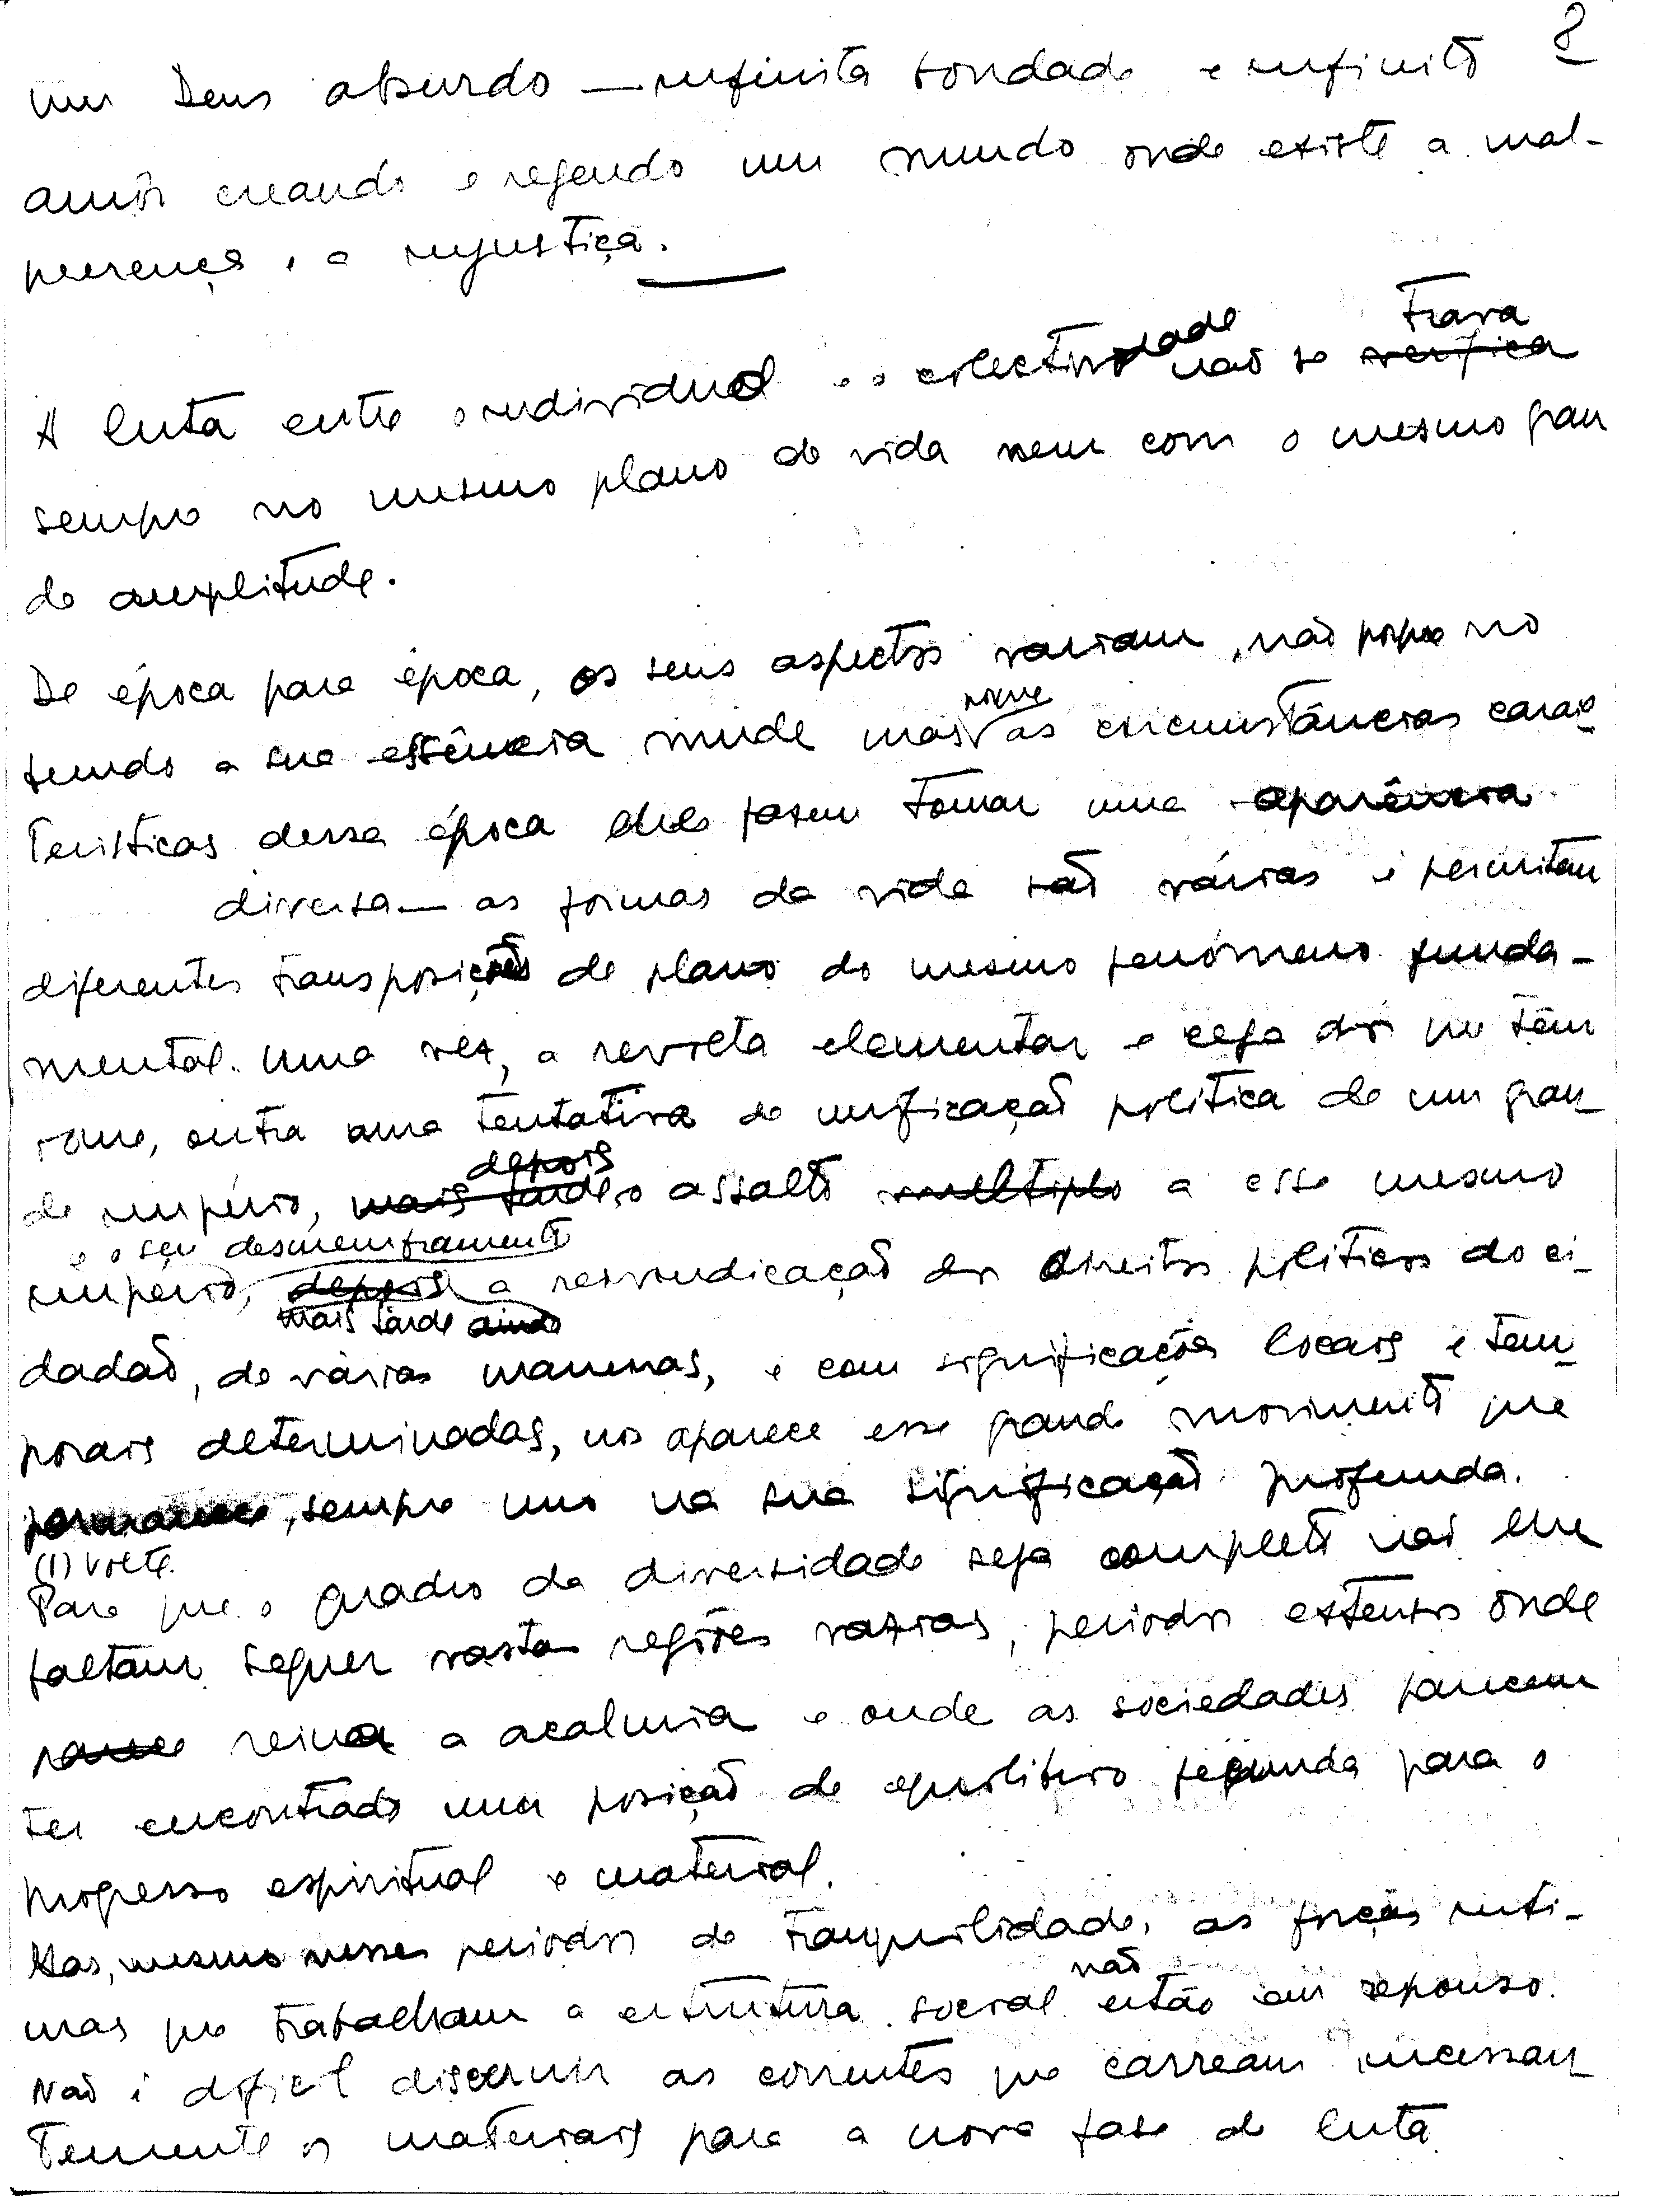 8
um Deus absurdo — infinita bondade e infinito
amôr creando e regendo um mundo onde existe a mal-
querença e a injustiça.
trava
A luta entre o individual e o colectividade não se verifica
sempre no mesmo plano de vida nem com o mesmo grau
de amplitude.
De época para época, os seus aspectos variam, não porque no
fundo a sua essência mude mas porque as circunstâncias carac-
teristicas dessa época lhe fazem tomar uma aparência
diversa — as formas da vida são várias e permitem
diferentes transposições de plano do mesmo fenómeno funda-
mental. Uma vez, a revolta elementar e cega dos que têm
fome, outra uma tentativa de unificação politica de um gran-
depois
de império, mais tarde, o assalto multiplo a esse mesmo
e o seu desmembramento
império, depois a reivindicação dos direitos politicos do ci-
mais tarde ainda
dadão, de várias maneiras, e com significações locais e tem-
porais determinadas, nos aparece esse grande movimento que
permanece, sempre uno na sua significação profunda.
(1) Volte.
Para que o quadro da diversidade seja completo não lhe
faltam sequer vastas regiões vazias, periodos extensos onde
parece reina a acalmia e onde as sociedades parecem
ter encontrado uma posição de equilibrio fecunda para o
progresso espiritual e material.
Mas, mesmo nesses periodos de tranquilidade, as forças inti-
não
mas que trabalham a estrutura social estão em repouso.
Não é dificil discernir as correntes que carream incessan-
temente os materiais para a nova fase de luta